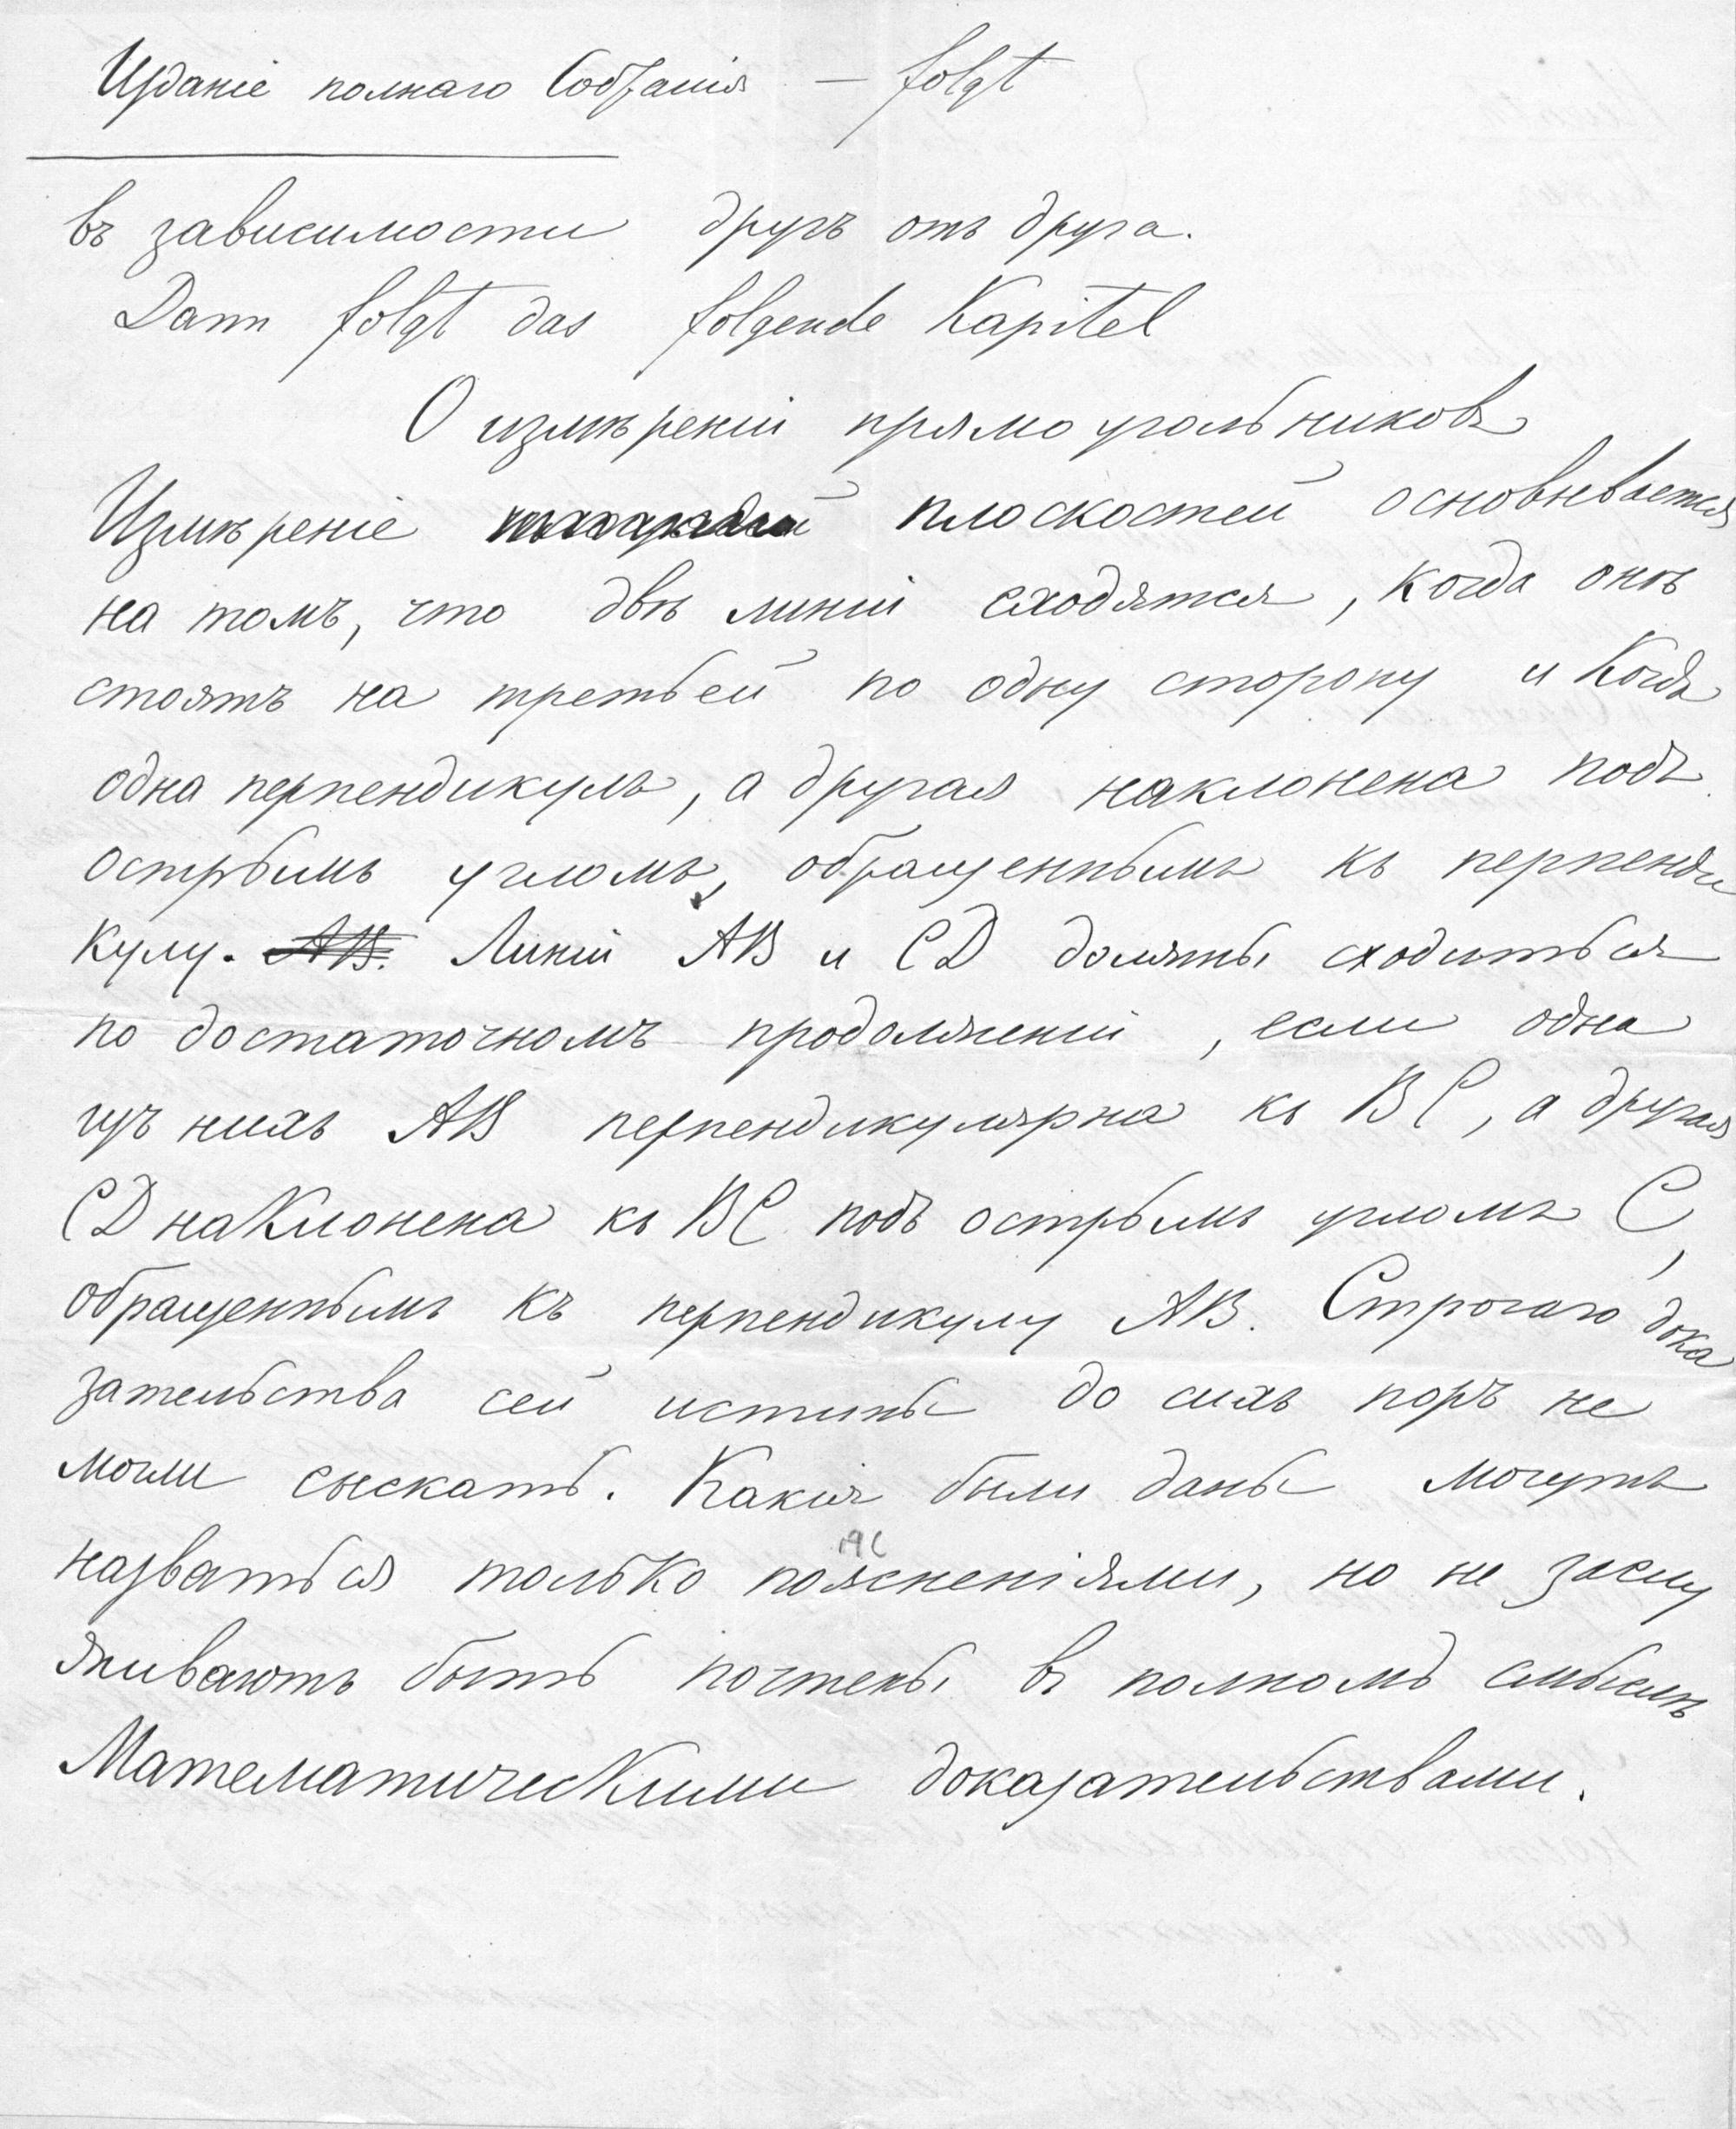 Изданіе полнаго Собранія — folgt
въ зависимости другъ отъ друга.
Dann folgt das folgende Kapitel
О измѣреніи прямоугольниковъ
Измѣреніе плоскостей основывается
на томъ, что двѣ линіи сходятся, когда онѣ
стоятъ на третьей по одну сторону и когда
одна перпендикулъ, а другая наклонена подъ
острымъ угломъ, обращеннымъ къ перпенди
кулу. АВ. Линіи АВ и CD должны сходиться
по достаточномъ продолженіи, если одна
изъ нихъ АВ перпендикулярна къ ВС, а другая
CD наклонена къ ВС подъ острымъ угломъ С,
обращеннымъ къ перпендикулу АВ. Строгаго дока
зательства сей истины до сихъ поръ не
могли сыскать. Какія были даны могутъ
назваться только поясненіями, но не заслу
живаютъ быть почтены въ полномъ смыслѣ
Математическими доказательствами.